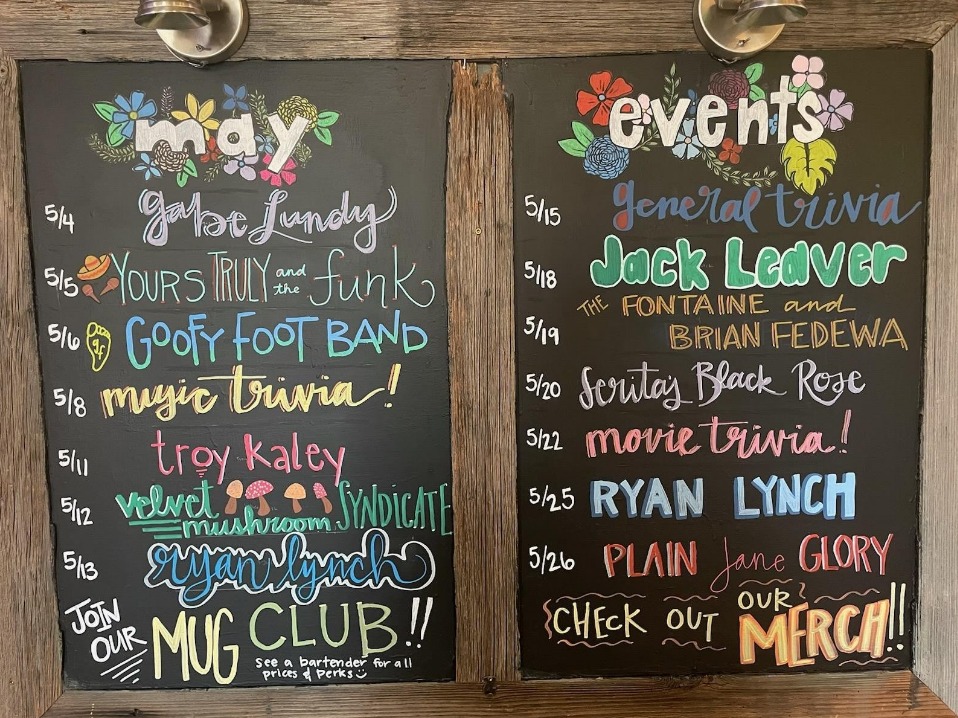 may
5/4 Gabe Lundy
5/5 YOURS TRULY and the funk
5/6 gf GOOFY FOOT BAND
5/8 music trivia!
5/11 troy kaley
5/12 velvet mushroom SYNDICATE
5/13 ryan lynch
JOIN OUR MUG CLUB!!
See a bartender for all
prices & perks
events
5/15 general trivia
5/18 Jack Leaver
5/19 THE FONTAINE and
BRIAN FEDEWA
5/20 Serita's Black Rose
5/22 movie trivia!
5/25 RYAN LYNCH
5/26 PLAIN Jane GLORY
CHECK OUT OUR MERCH!!